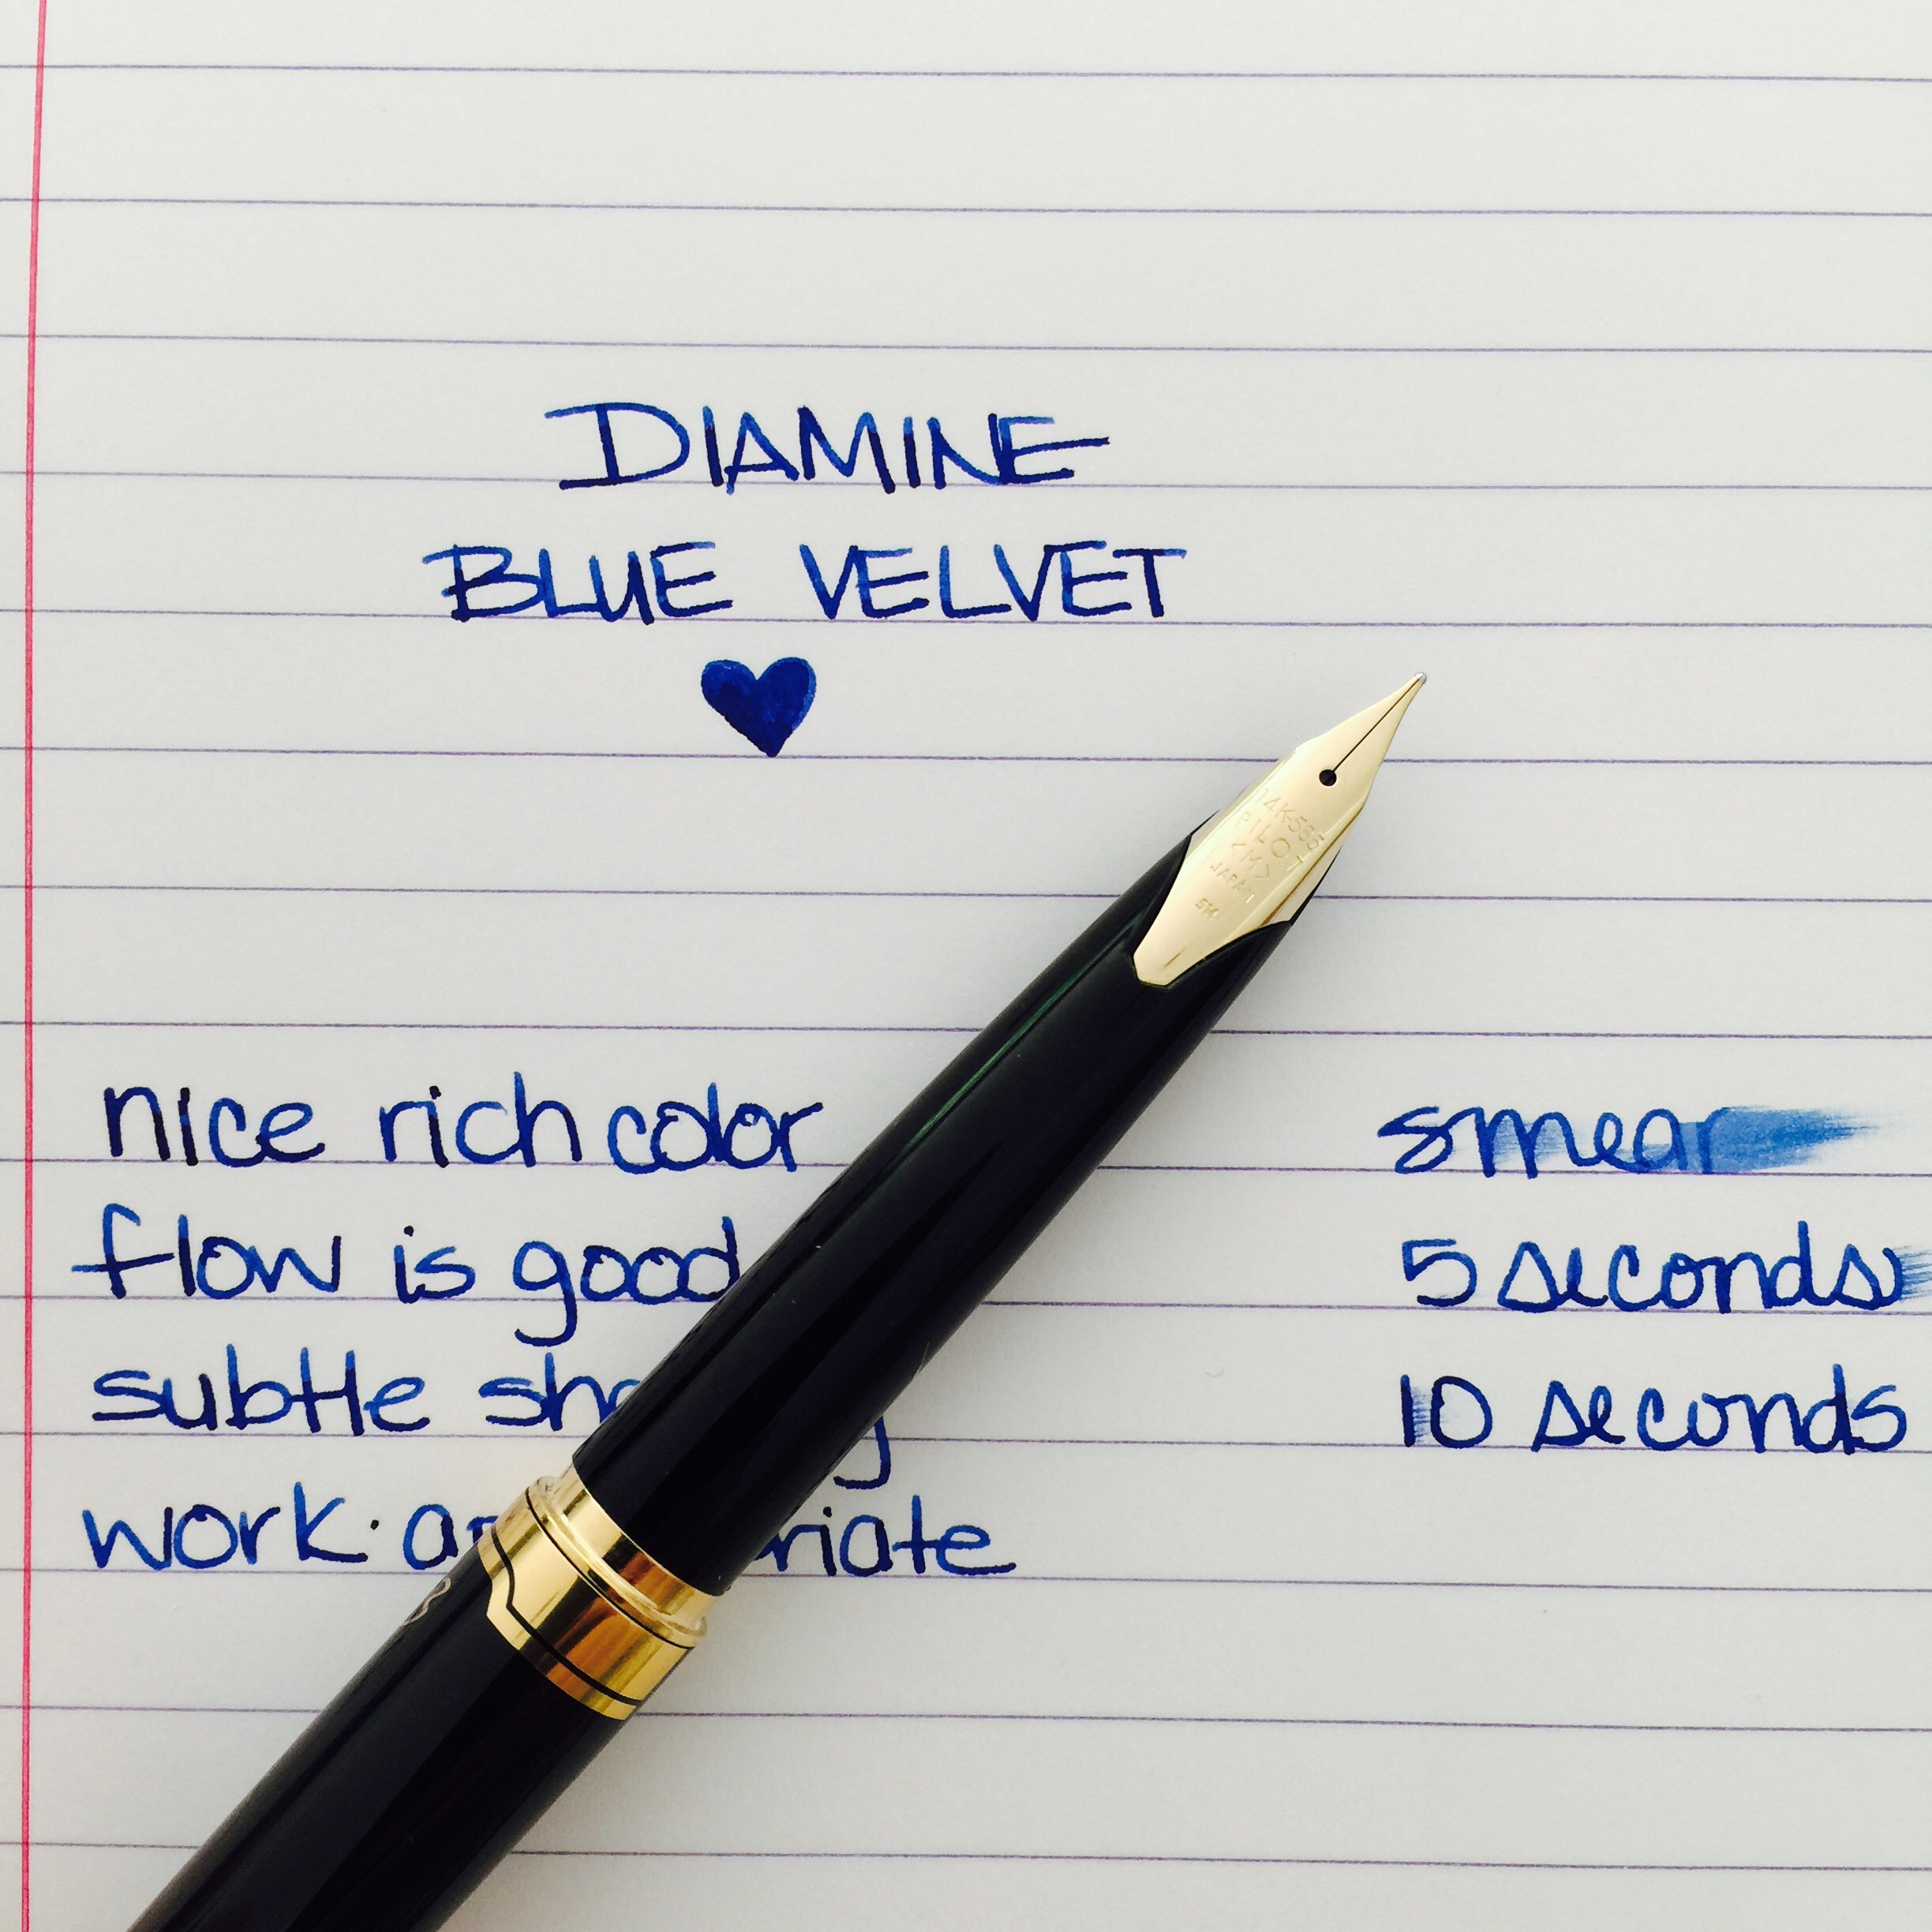 DIAMINE
BLUE VELVET
14K-585
PILOT
<M>
JAPAN
nice rich color
smear
flow is good
5 seconds
subtle
10 seconds
work